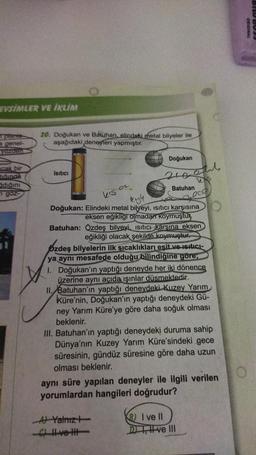 EVSİMLER VE İKLİM
20. Doğukan ve Batuhan, elindeki metal bilyeler ile
aşağıdaki deneyleri yapmıştır.
Doğukan
Isıtıcı
Batuhan
Doğukan: Elindeki metal bilyeyi, ısıtıcı karşısına
eksen eğikliği olmadan koymuştur.
Batuhan: Özdeş bilyeyi, ısıtıcı karşına eksen
eğikliği olacak şekilde koymuştur.
Özdeş bilyelerin ilk sıcaklıkları eşit ve ısıtıcı-
ya aynı mesafede olduğu bilindiğine göre;
I. Doğukan'ın yaptığı deneyde her iki dönence
üzerine aynı açıda ışınlar düşmektedir.
II. Batuhan'ın yaptığı deneydeki Kuzey Yarım
Küre'nin, Doğukan'ın yaptığı deneydeki Gü-
ney Yarım Küre'ye göre daha soğuk olması
beklenir.
III. Batuhan'ın yaptığı deneydeki duruma sahip
Dünya'nın Kuzey Yarım Küre'sindeki gece
süresinin, gündüz süresine göre daha uzun
olması beklenir.
aynı süre yapılan deneyler ile ilgili verilen
yorumlardan hangileri doğrudur?
A) Yalnız I
B) I ve II
C) II ve III
D) I, II ve III